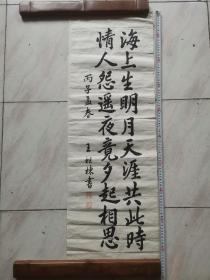 海上生明月天涯共此時
情人怨遥夜竟夕起相思
丙子孟春
王林棟書